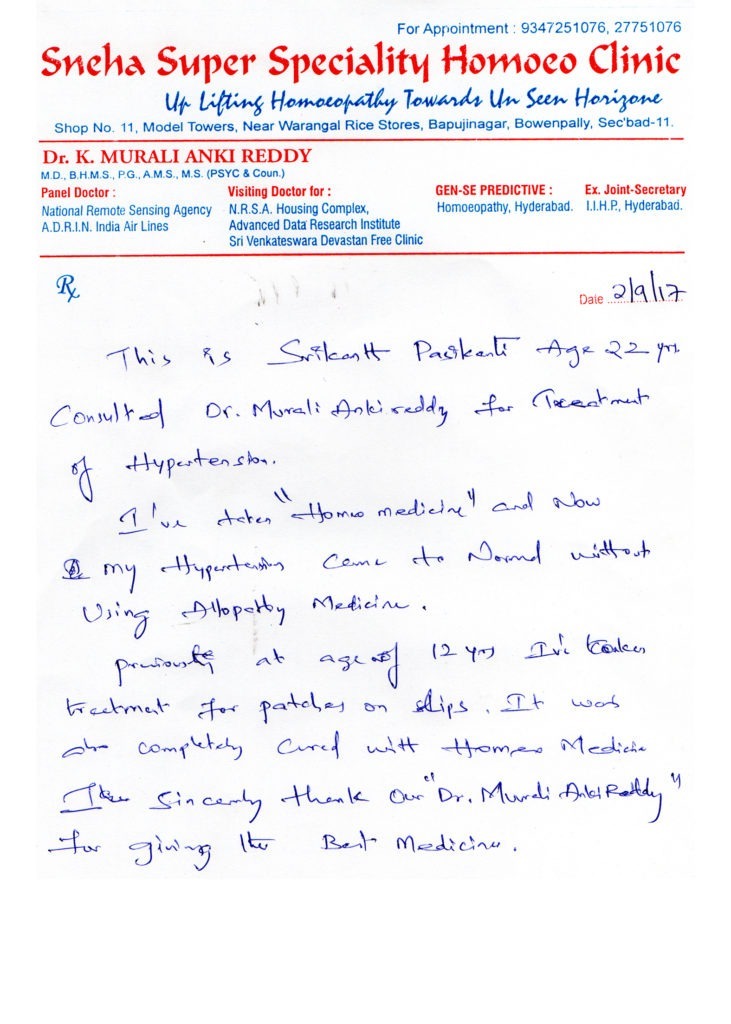 For Appointment : 9347251076, 27751076
Sneha Super Speciality Homoeo Clinic
Up Lifting Homoeopathy Towards Un Seen Horizone
Shop No. 11, Model Towers, Near Warangal Rice Stores, Bapujinagar, Bowenpally, Sec'bad-11.
Dr. K. MURALI ANKI REDDY
M.D., B.H.M.S., P.G., A.M.S., M.S. (PSYC & Coun.)
Panel Doctor :
National Remote Sensing Agency
A.D.R.I.N. India Air Lines
Visiting Doctor for :
N.R.S.A. Housing Complex,
Advanced Data Research Institute
Sri Venkateswara Devastan Free Clinic
GEN-SE PREDICTIVE :
Homoeopathy, Hyderabad.
Ex. Joint-Secretary
I.I.H.P., Hyderabad.
Rx
Date 2/9/17
This is Srikanth Pasikanti Age 22 yrs.
Consulted Dr. Murali Ankireddy for Treatment
of Hypertension.
I've taken "Homeo medicine" and Now
my Hypertension Came to Normal without
Using Allopathy Medicine.
previously at age of 12 yrs I've taken
treatment for patches on slips. It was
also completely Cured with Homeo Medicine
I sincerely thank Our "Dr. Murali AnkiReddy"
for giving the Best Medicine.